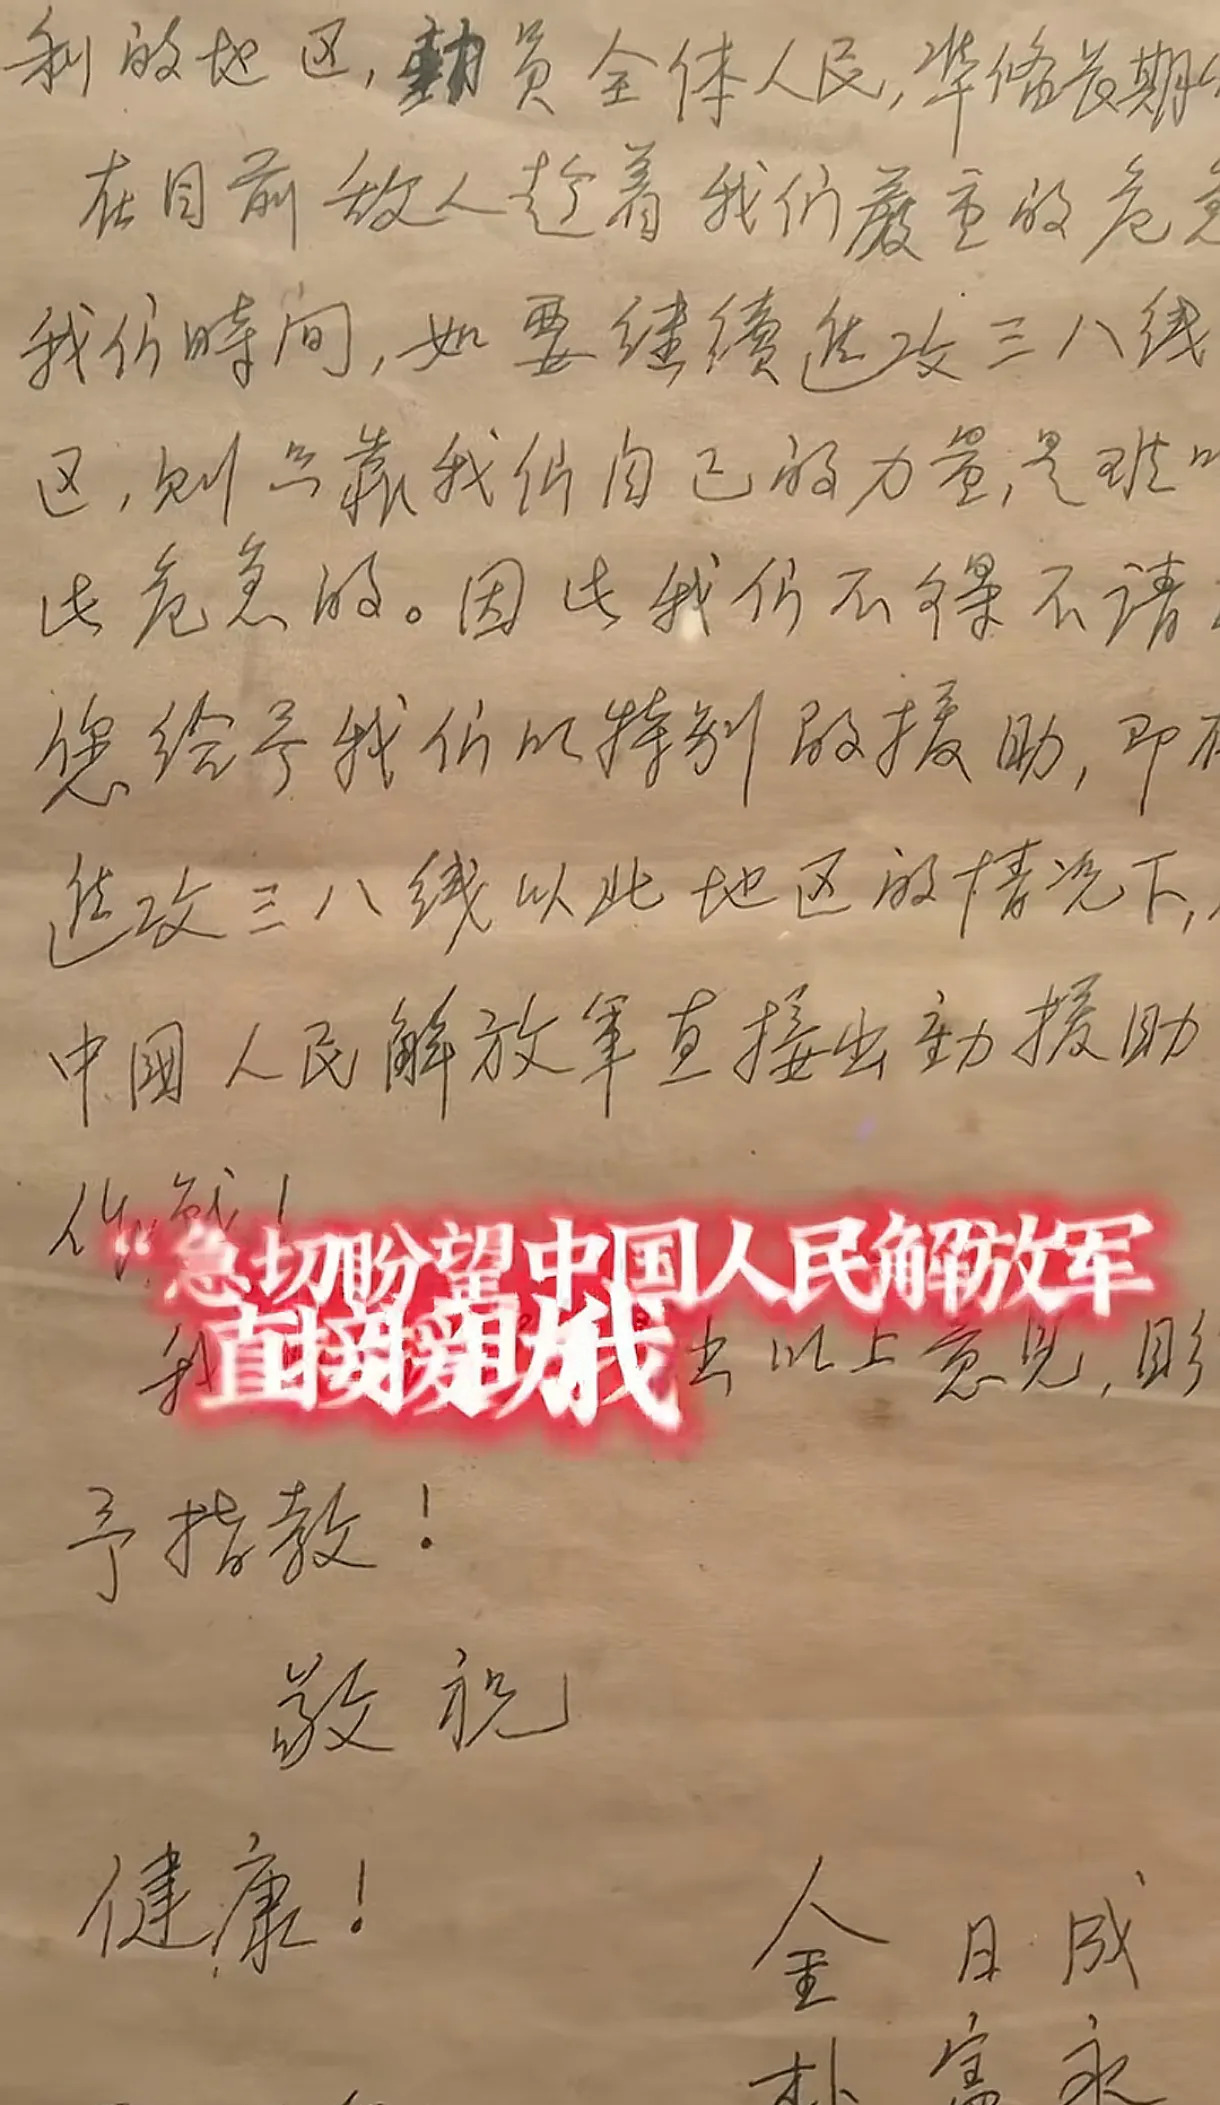 利的地区，動員全体人民，準俻长期
在目前敌人趁着我们嚴重的危急
我们時间，如要继续進攻三八线
区，则只靠我们自己的力量，是难
此危急的。因此我们不得不请
您给予我们以特别的援助，即在
進攻三八线以北地区的情况下，
中國人民解放军直接出動援助
作战！
“急切盼望中国人民解放军
直接援助我
我 出以上意见，
予指教！
敬祝
健康！
金日成
朴宪永